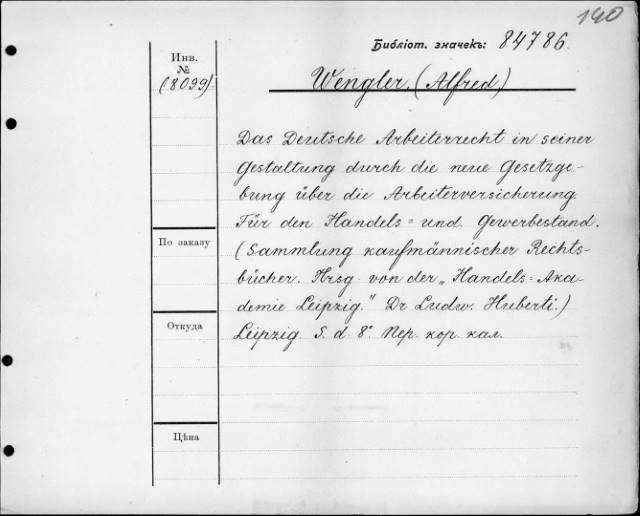 140
Библіот. значекъ: 84786.
Инв.
№
(8099).
Wengler, (Alfred)
Das Deutsche Arbeiterrecht in seiner
Gestaltung durch die neue Gesetzge-
bung über die Arbeiterversicherung.
Für den Handels= und Gewerbestand.
(Sammlung kaufmännischer Rechts-
bücher. Hrsg. von der „Handels=Aka-
demie Leipzig." Dr Ludw. Huberti.)
Leipzig. S. d. 8°. Пер. кор. кал.
По заказу
Откуда
Цѣна